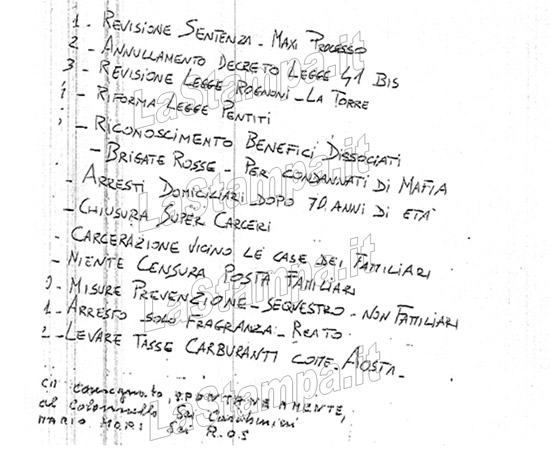 1 - REVISIONE SENTENZA - MAXI PROCESSO
2 - ANNULLAMENTO DECRETO LEGGE 41 BIS
3 - REVISIONE LEGGE ROGNONI - LA TORRE
- RIFORMA LEGGE PENTITI
- RICONOSCIMENTO BENEFICI DISSOCIATI
- BRIGATE ROSSE - PER CONDANNATI DI MAFIA
- ARRESTI DOMICILIARI DOPO 70 ANNI DI ETÀ
- CHIUSURA SUPER CARCERI
- CARCERAZIONE VICINO LE CASE DEI FAMILIARI
- NIENTE CENSURA POSTA FAMILIARI
- MISURE PREVENZIONE - SEQUESTRO - NON FAMILIARI
1 - ARRESTO SOLO FRAGRANZA - REATO
2 - LEVARE TASSE CARBURANTI COME AOSTA -
consegnato, SPONTANEAMENTE,
al Colonnello dei Carabinieri
MARIO MORI dei R.O.S
LaStampa.it
LaStampa.it
LaStampa.it
LaStampa.it
LaStampa.it